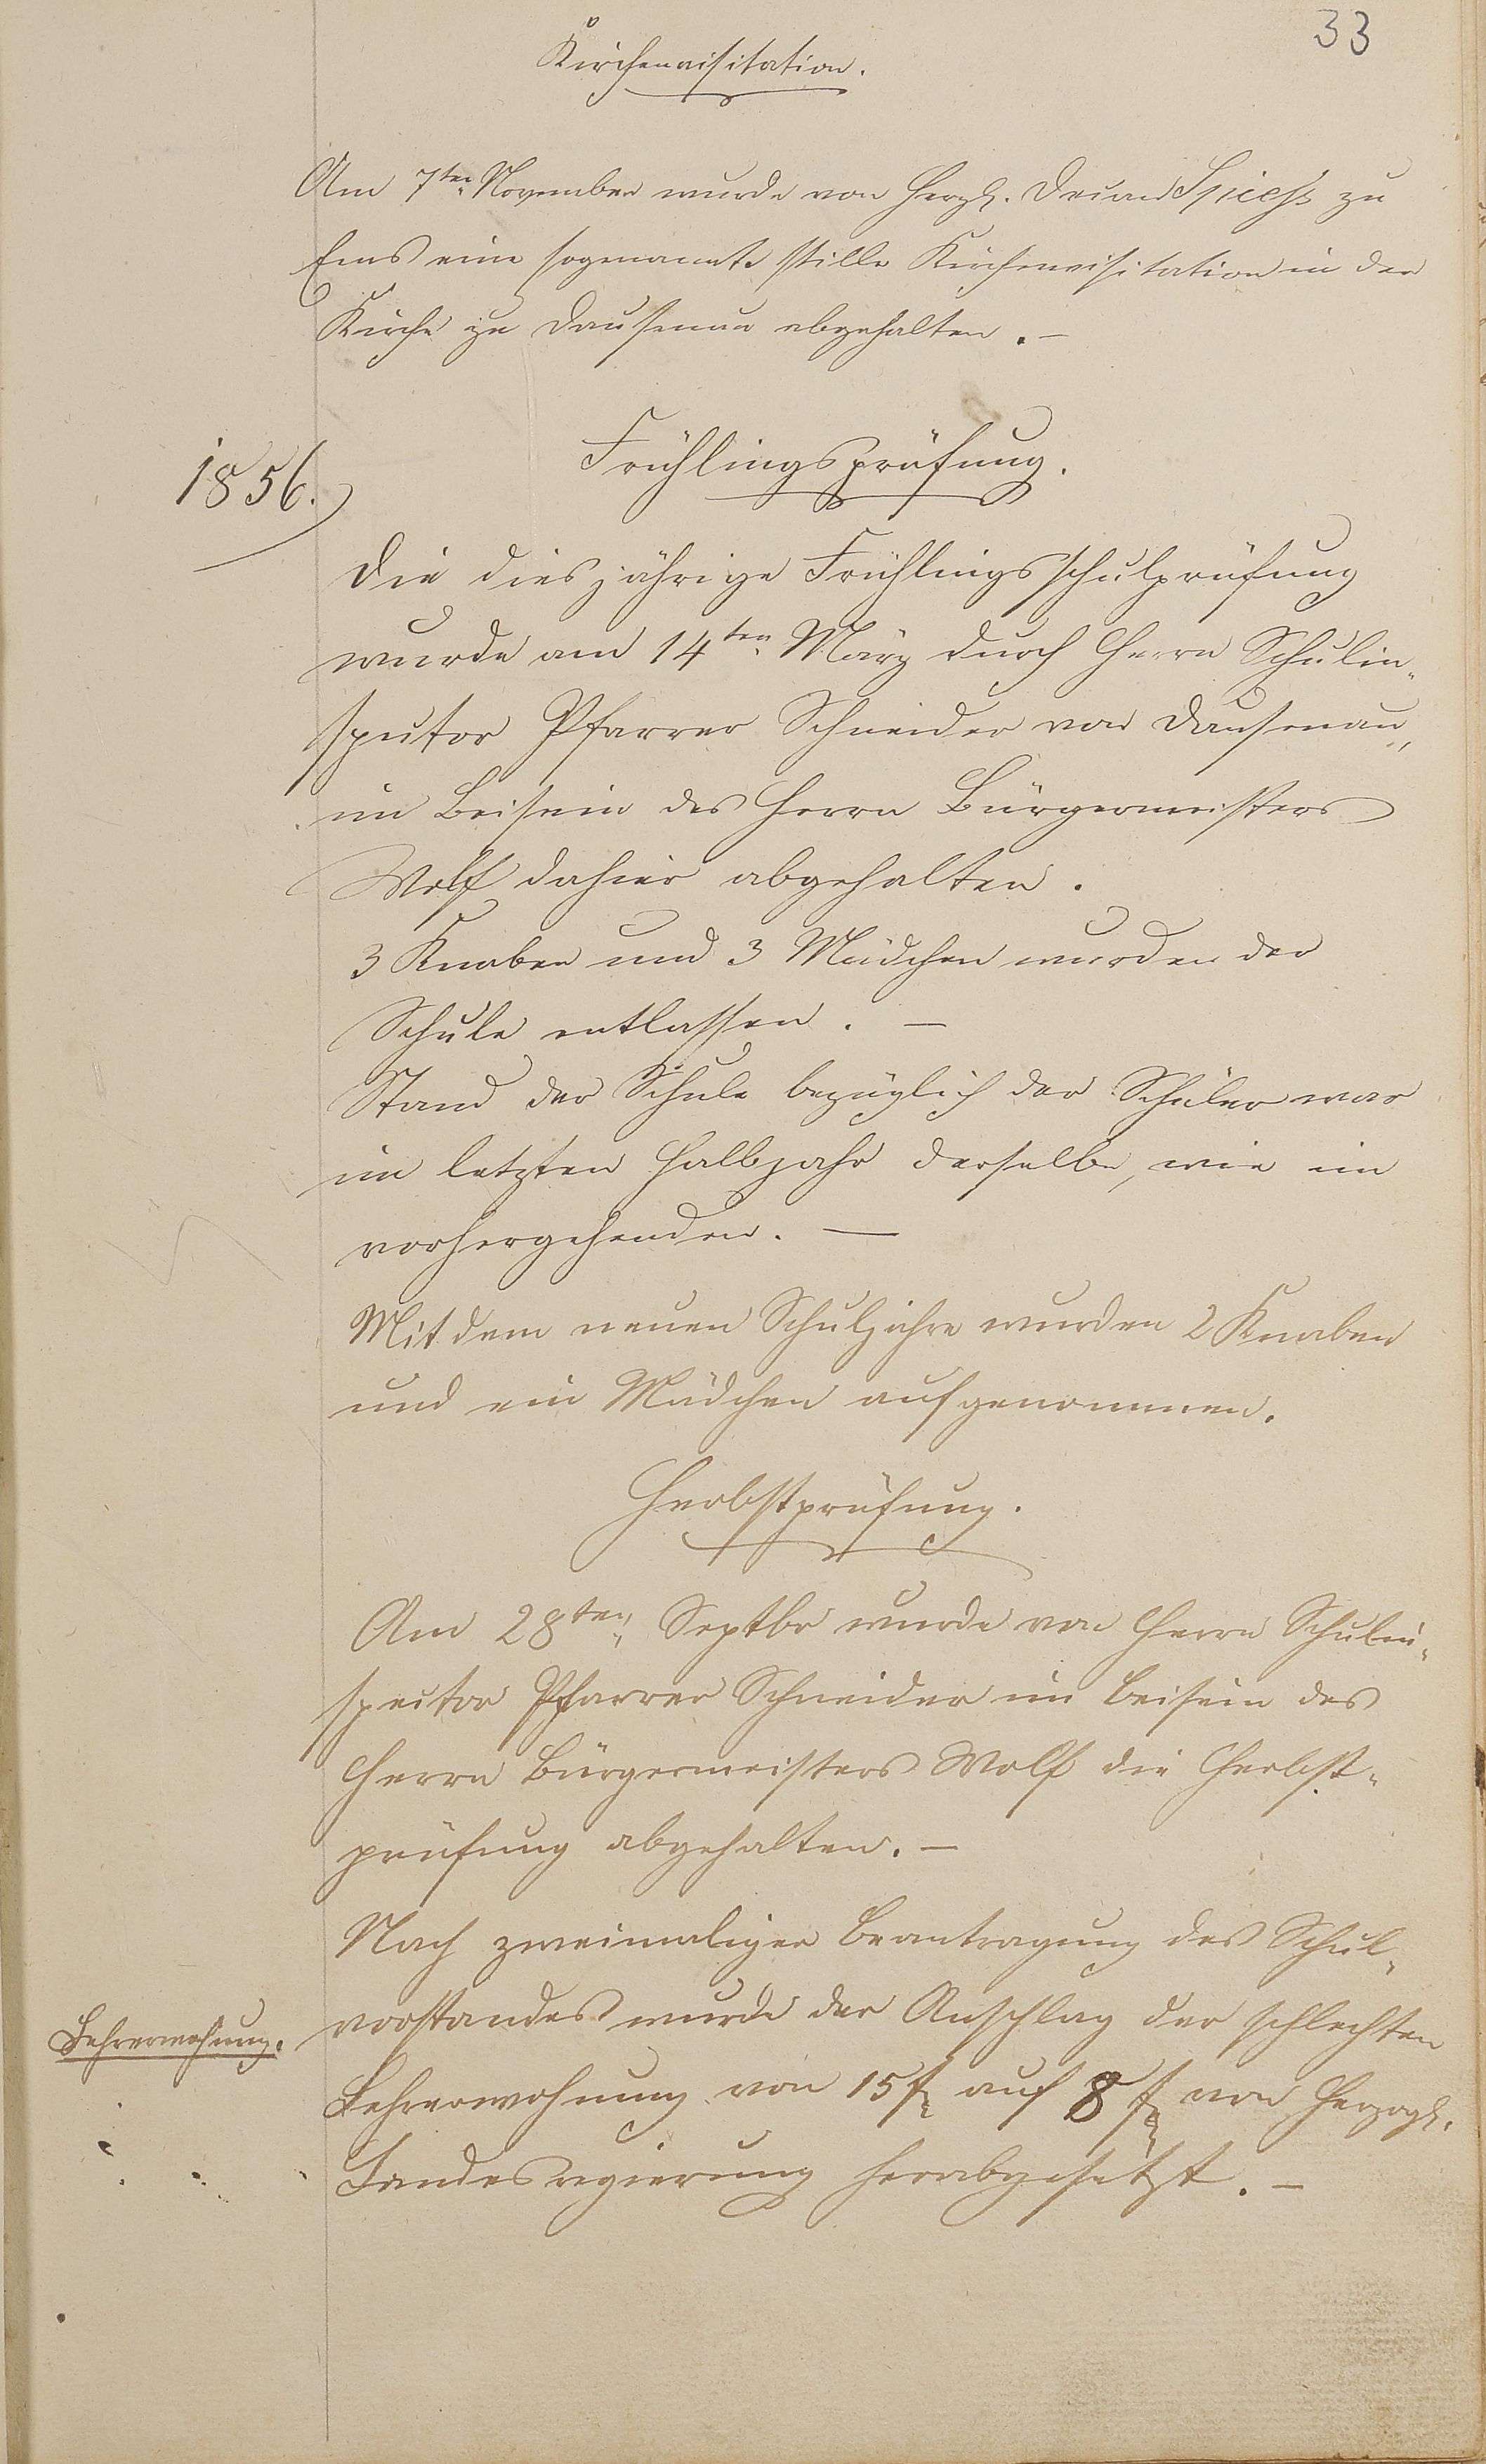 33
Kirchenvisitation.
Am 7ten November wurde von Herzgl. Decan Spiess zu
Ems eine sogenannte stille Kirchenvisitation in der
Kirche zu Dausenau abgehalten. –
1856.
Frühlingsprüfung.
Die diesjährige Frühlingsschulprüfung
wurde am 14ten März durch Herrn Schulin-
spector Pfarrer Schneider von Dausenau,
im Beisein des Herrn Bürgermeisters
Wolf dahier abgehalten.
3 Knaben und 3 Mädchen wurden der
Schule entlassen. –
Stand der Schule bezüglich der Schüler war
im letzten Halbjahr derselbe, wie im
vorhergehenden. –
Mit dem neuen Schuljahre wurden 2 Knaben
und ein Mädchen aufgenommen.
Herbstprüfung.
Am 28ten Septbr wurde von Herrn Schulin-
spector Pfarrer Schneider im Beisein des
Herrn Bürgermeisters Wolf die Herbst-
prüfung abgehalten. –
Nach zweimaliger Beantragung des Schul-
vorstandes wurde der Anschlag der schlechten
Lehrerwohnung.
Lehrerwohnung von 15 fl auf 8 fl von Herzogl.
Landesregierung herabgesetzt. –